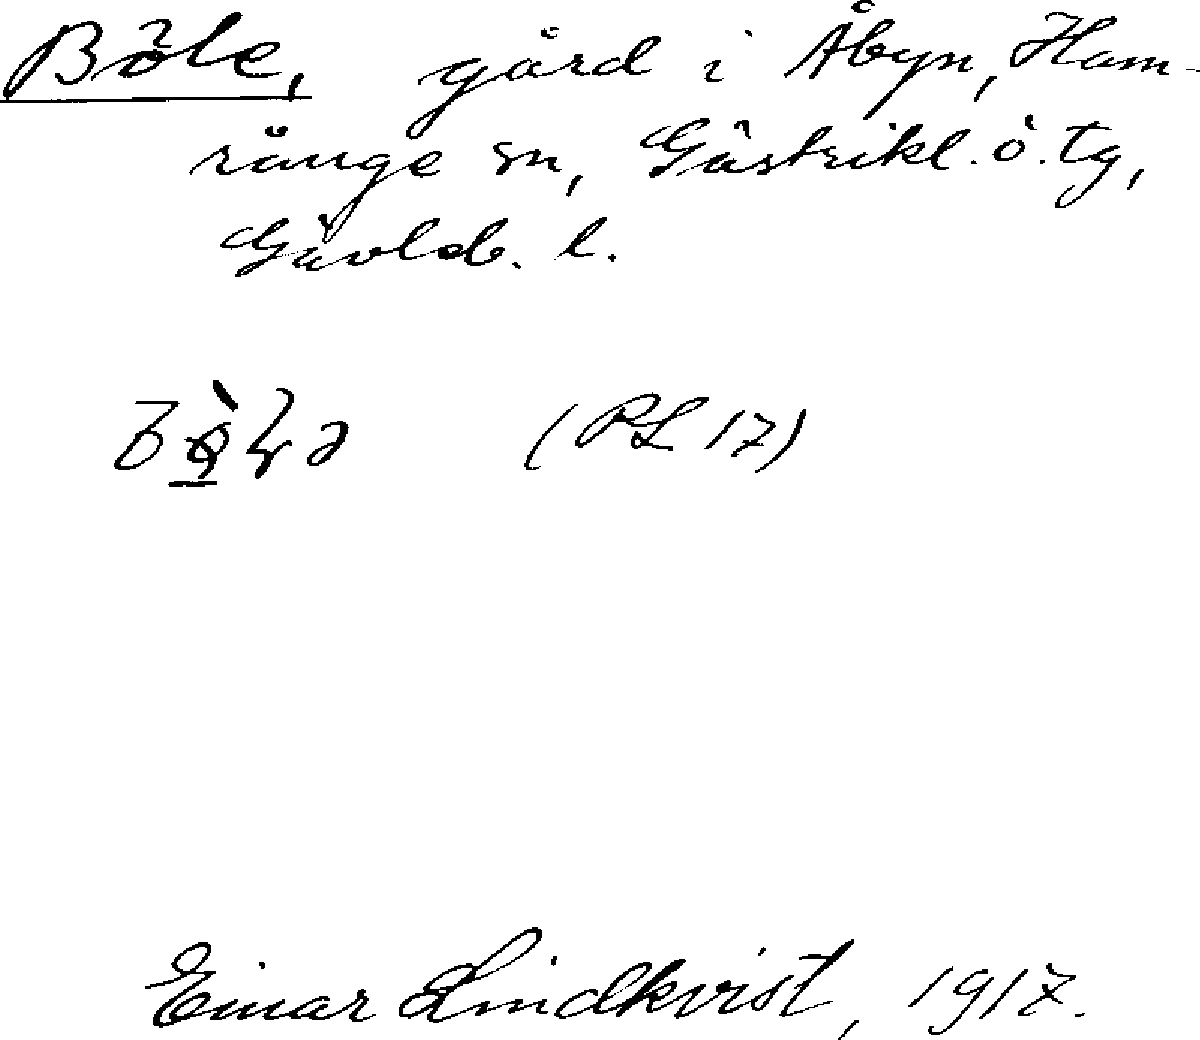 Böle, gård i Åbyn, Ham-
rånge sn, Gästrikl. ö. tg,
Gävleb. l.
(PL 17)
Einar Lindkvist, 1917.